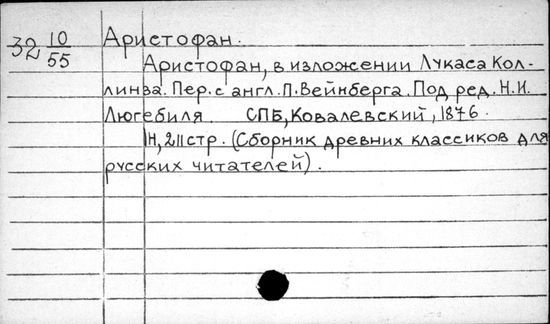 32 10/55 Аристофан.
Аристофан, в изложении Лукаса Кол-
линза. Пер. с англ. П. Вейнберга. Под ред. Н.И.
Люгебиля. СПБ, Ковалевский, 1876.
IH, 211 стр. (Сборник древних классиков для
русских читателей).